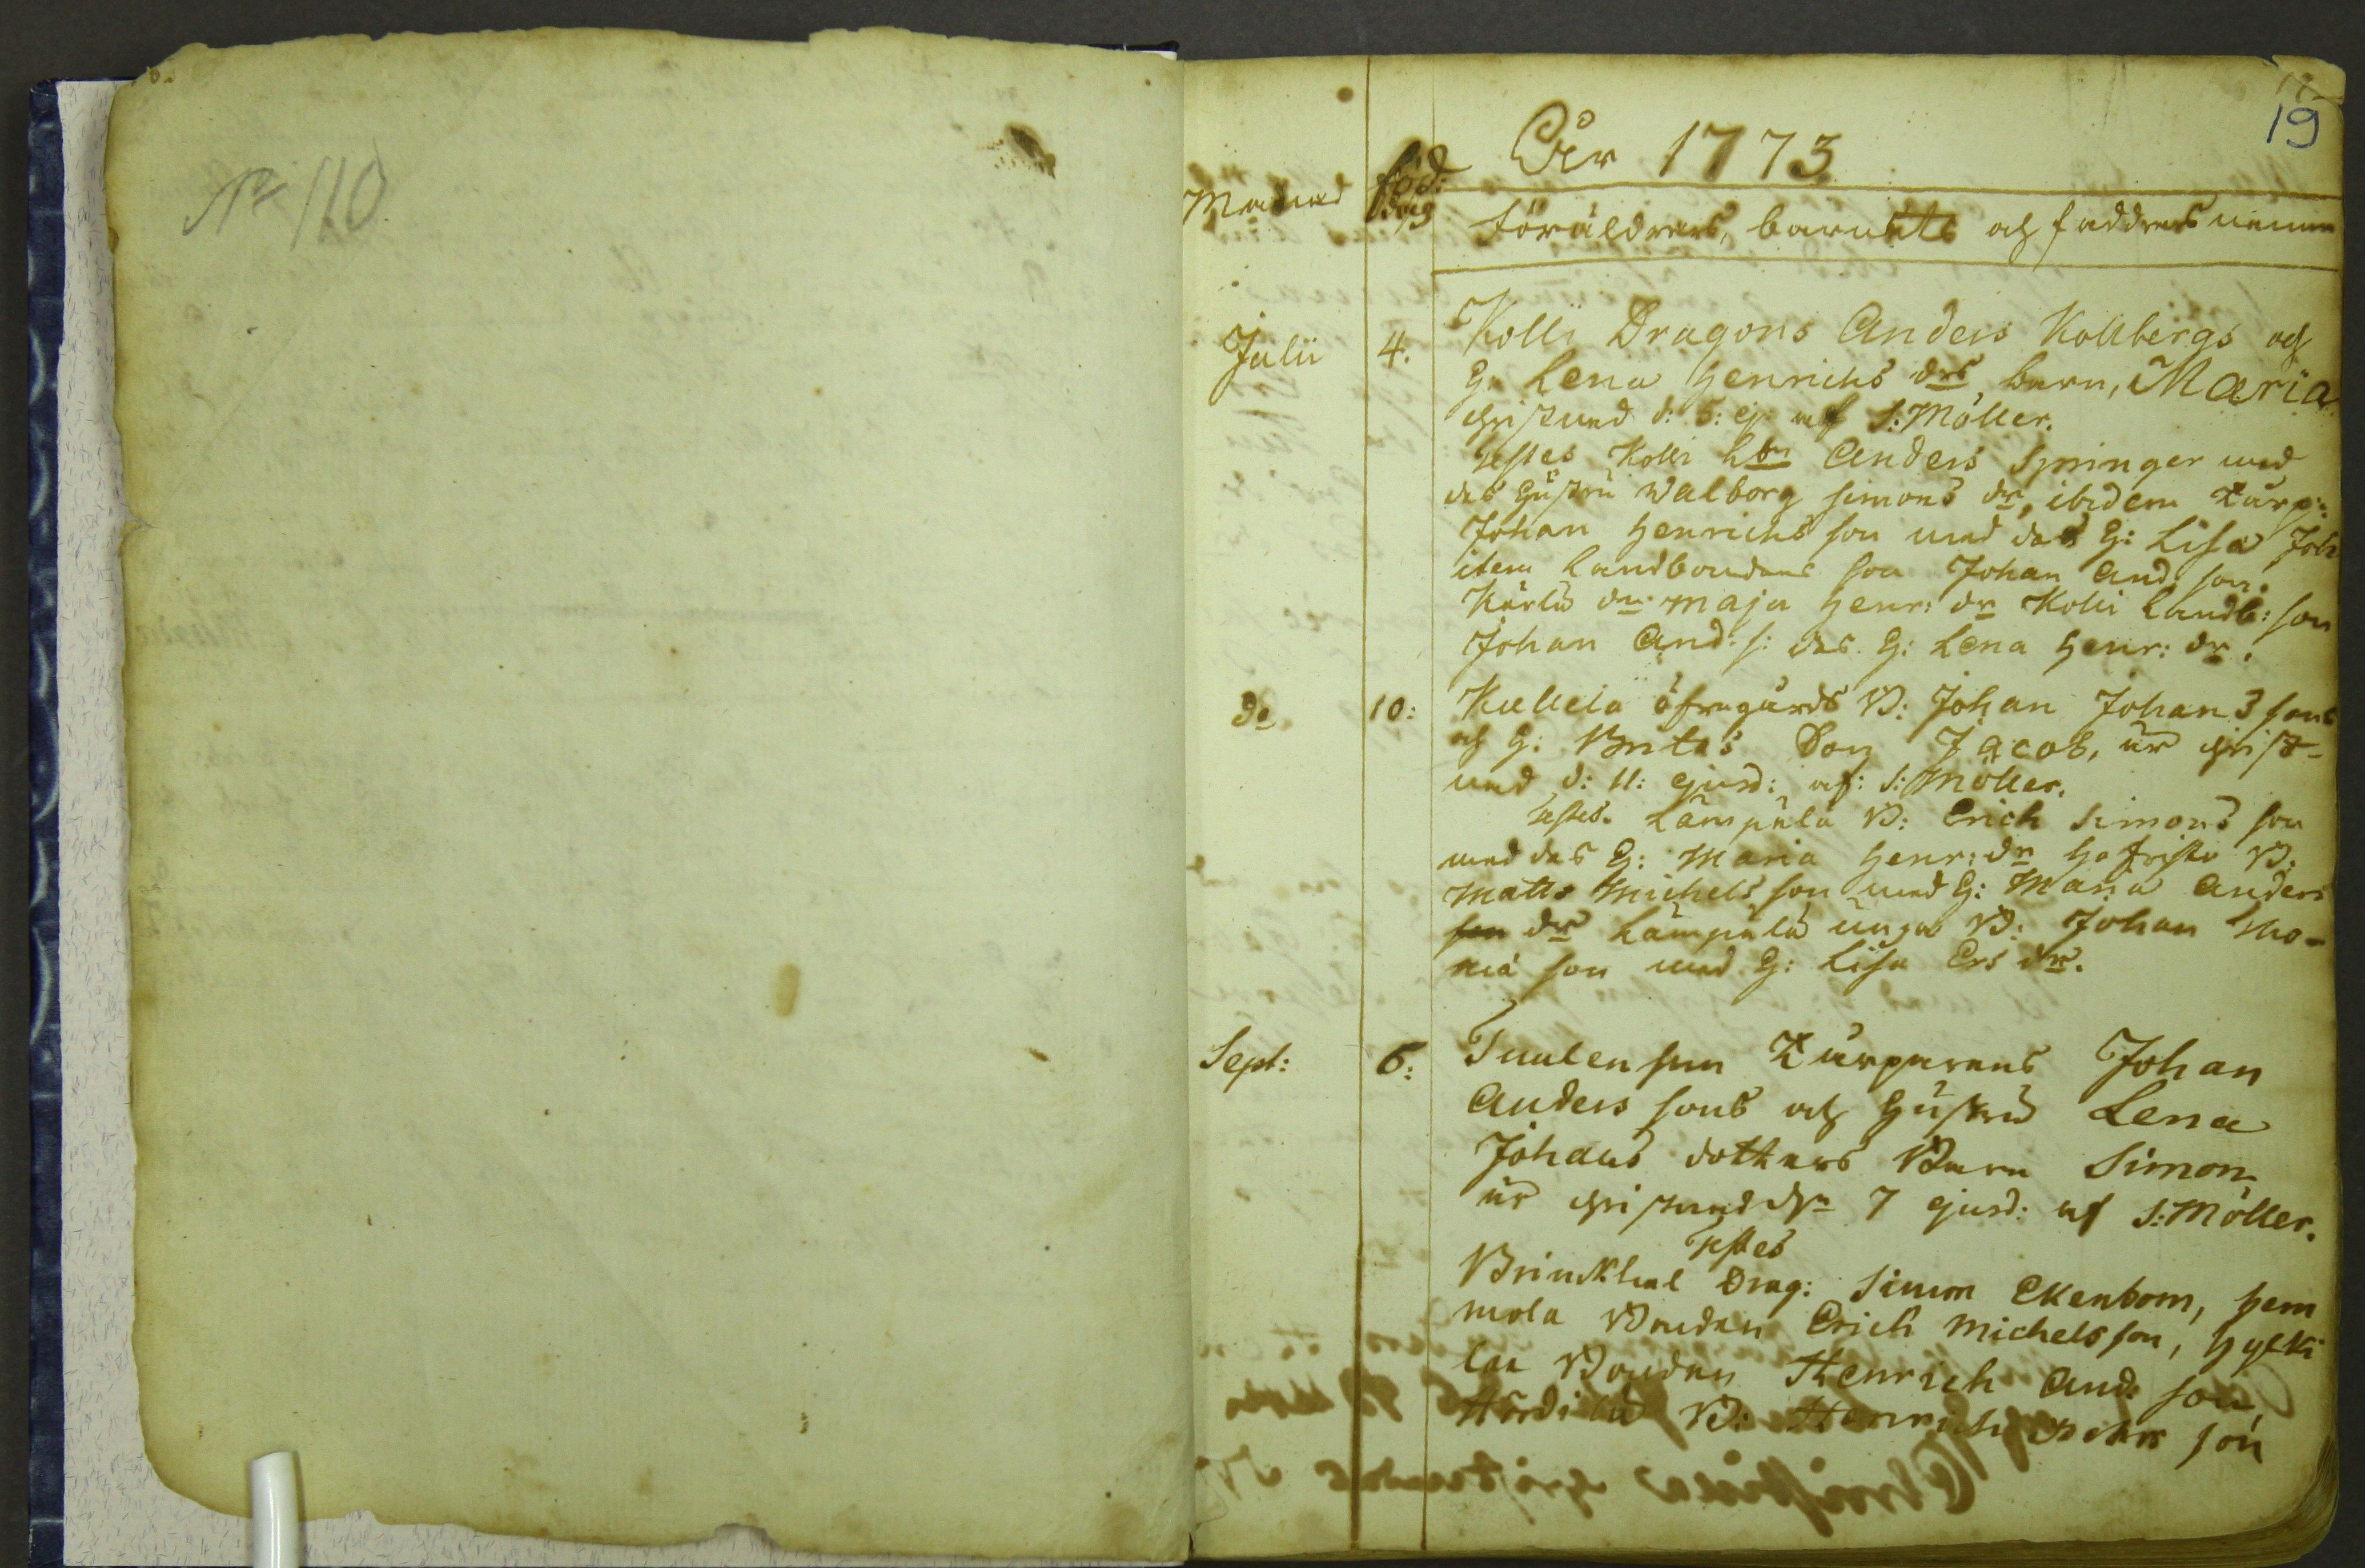 No 110
19
År 1773
Månad
föd: dag
Föräldrars, barnets och faddrars namn
Julii 4. Kolli Dragons Anders Kollbergs och
G: Lena Henrichs drs barn, Maria
christnad d: 5: ej. af S: Möller.
testes Kolli Anders Springer med
des hustru Walborg Simons dr, ibidem torp:
Johan Henrichs son med des h: Lisa Joh
item Landbondens son Johan And: son.
Maja Henr: dr Kolli Landb: son
Johan And: s: des h: Lena Henr: dr.
do 10: Kullela öfregårds B: Johan Johan 3 sons
och h: Britas Son Jacob, är christ-
nad d: 11: ejusd: af: S: Möller.
testes. Lämpälä B: Erich Simons son
med des h: Maria Henr: dr B:
Matts Michels son med h: Maria Anders
son dr Lämpälä unga B: Johan Tho-
mä son med h: Lisa Ers dr.
Sept: 6: Tuulensuu Torparens Johan
Anders sons och hustrus Lena
Johans dotters Barn Simon,
är christnad dn 7 ejusd: af S: Möller.
Testes
Brinckhal Drag: Simon Ekenbom, Hem
mola Bonden Erich Michelsson, Hylki
lax Bonden Henrich And: son,
B: Henrich son